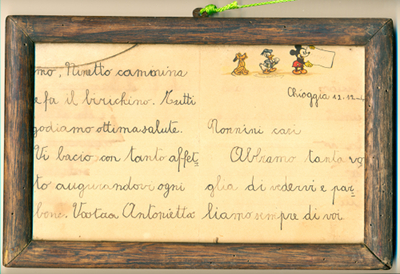 mo, Ninetto cammina
e fa il birichino. Tutti
godiamo ottima salute.
Vi bacio con tanto affet-
to augurandovi ogni
bene. Vostra Antonietta
Chioggia 12.12
Nonnini cari
Abbiamo tanta vo
glia di vedervi e par-
liamo sempre di voi